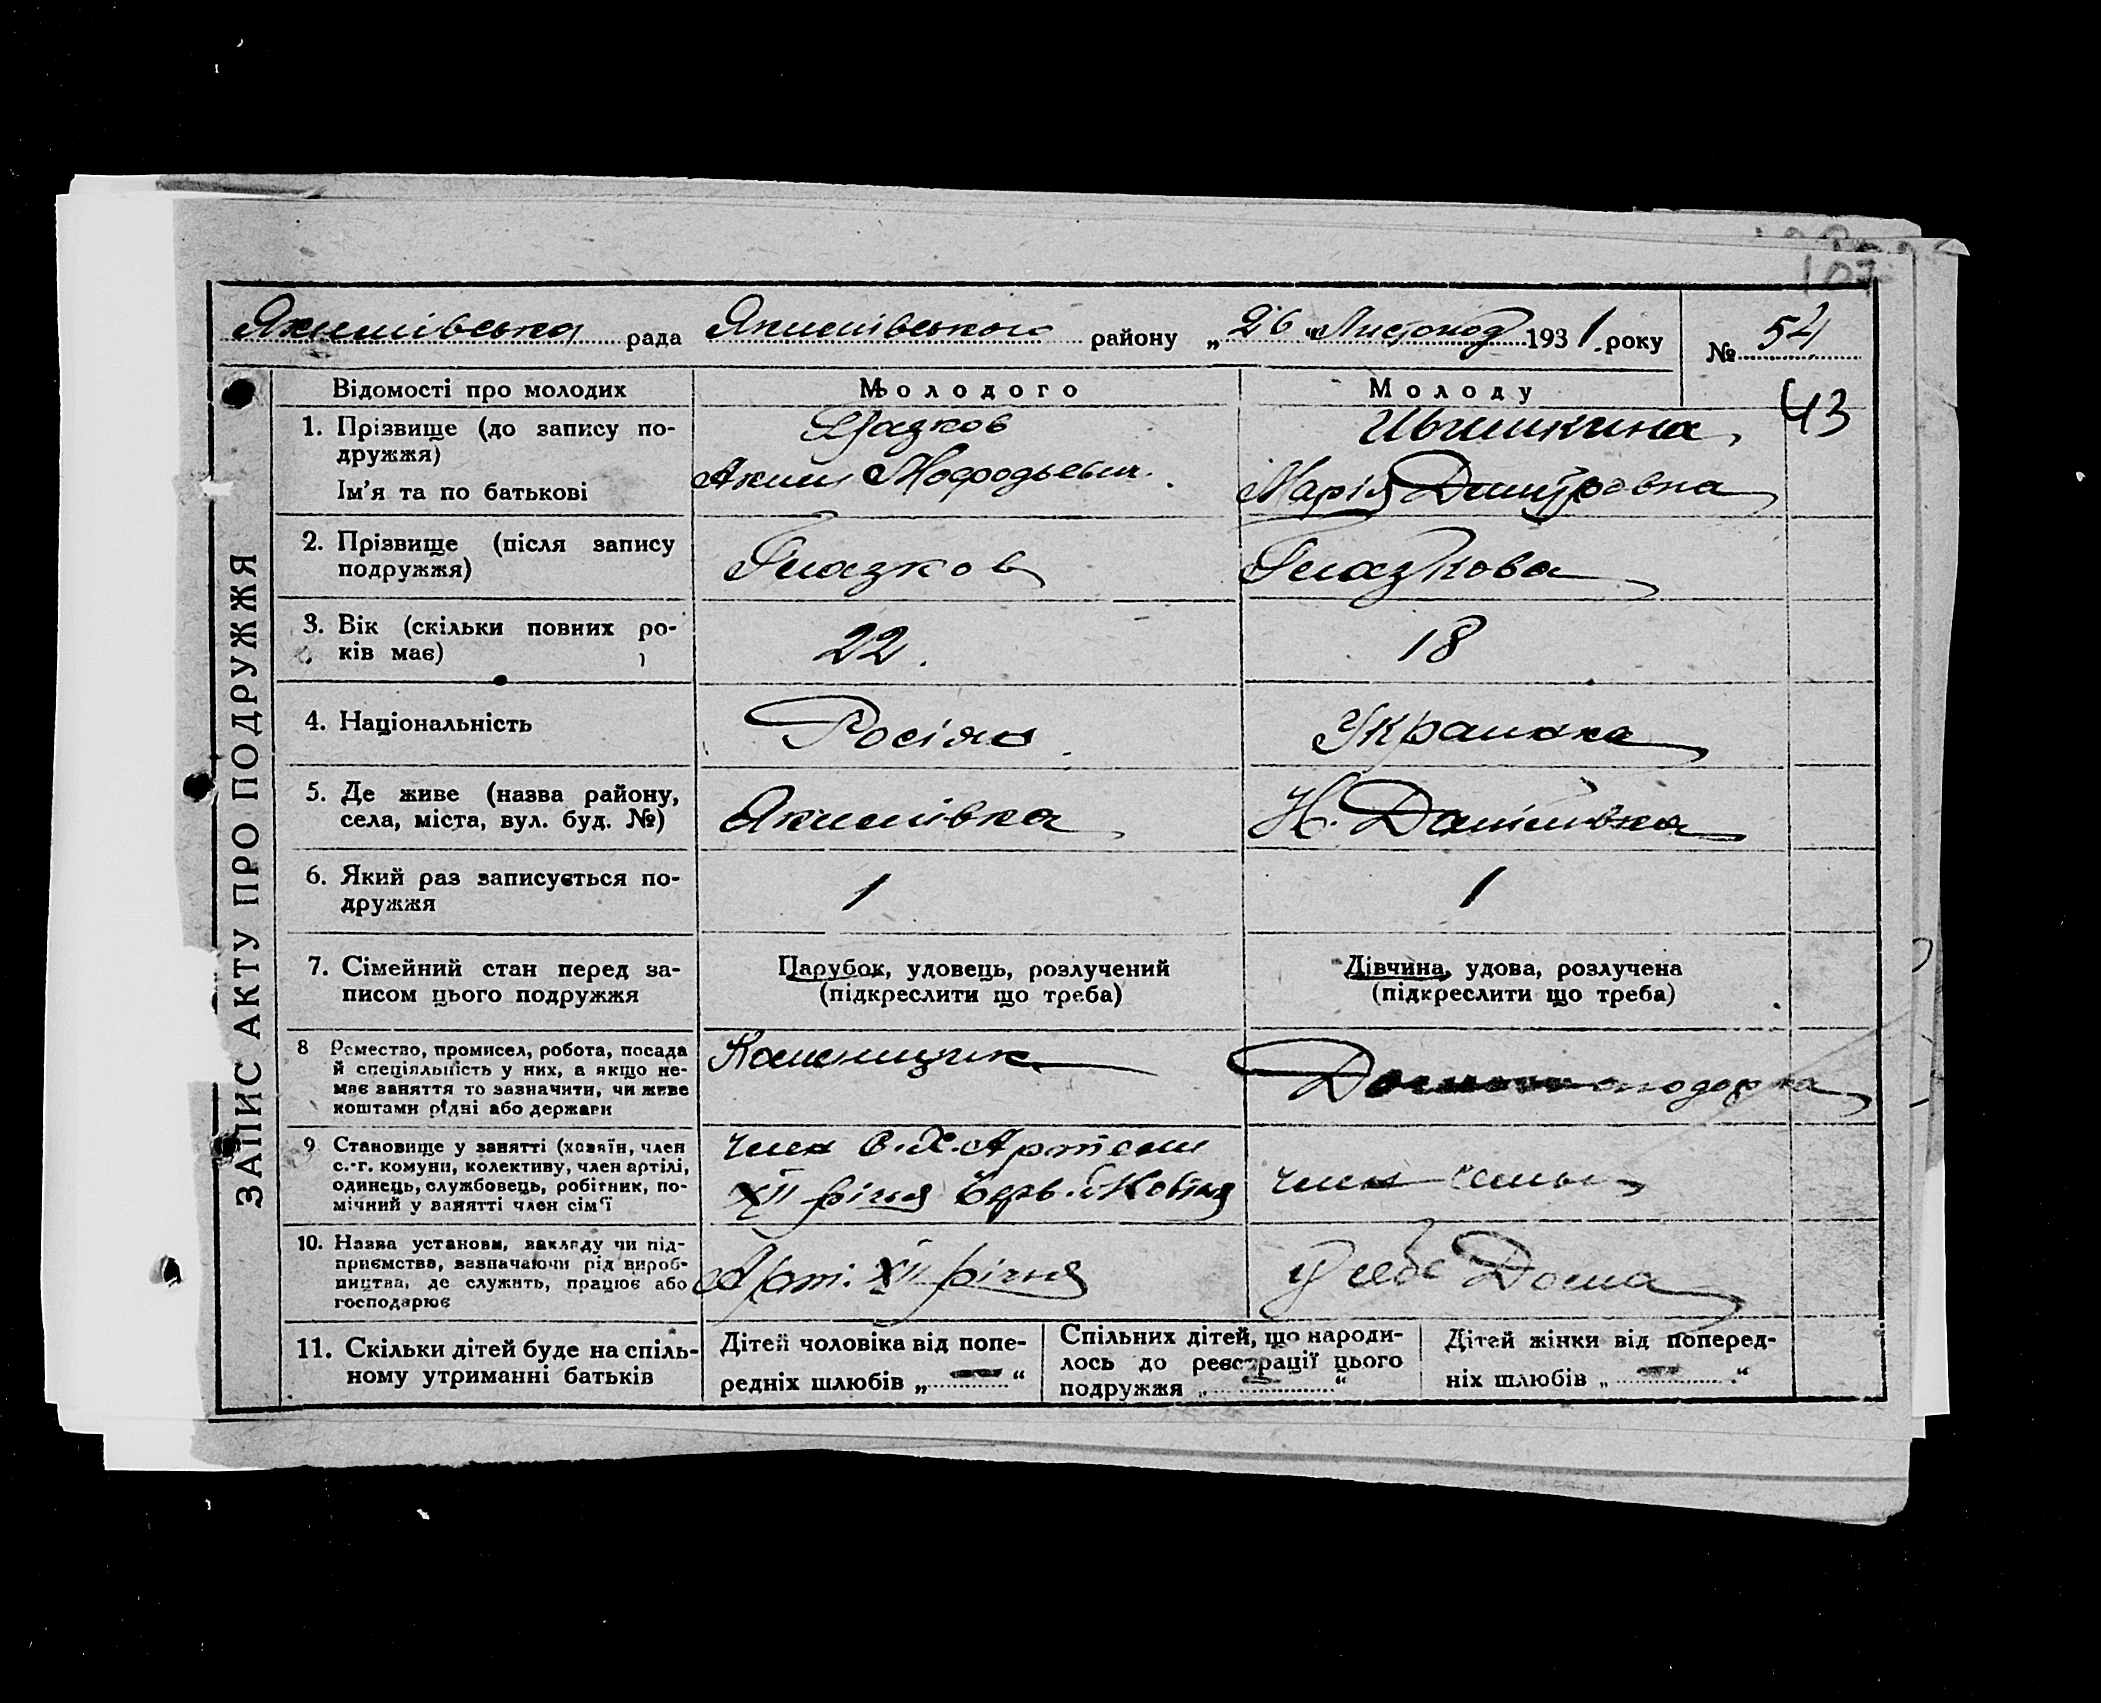 107
Якимівська рада Якимівського району „ 26 " Листопад 1931 року № 54
43
ЗАПИС АКТУ ПРО ПОДРУЖЖЯ
Відомості про молодих Молодого Молоду
1. Прізвище (до запису подружжя) Глазков
Ім’я та по батькові Аким Марія Дмитровна
2. Прізвище (після запису подружжя) Глазков Глазкова
3. Вік (скільки повних років має) 22. 18
4. Національність Росіян Украинка
5. Де живе (назва району, села, міста, вул. буд. №) Якимівка Н. Данилівка
6. Який раз записується подружжя 1 1
7. Сімейний стан перед записом цього подружжя Парубок, удовець, розлучений (підкреслити що треба) Дівчина, удова, розлучена (підкреслити що треба)
8 Ремество, промисел, робота, посада й спеціяльність у них, а якщо немає заняття то зазначити, чи живе коштами рідні або держави Каменщик
9 Становище у занятті (хазяїн, член с.-г. комуни, колективу, член артілі, одинець, службовець, робітник, помічний у занятті член сім'ї член С.Х. Артели XII річчя член семьи
10. Назва установи, закладу чи підприємства, зазначаючи рід виробництва, де служить, працює або господарює Арт. XII річчя у себе Дома
11. Скільки дітей буде на спільному утриманні батьків Дітей чоловіка від попередніх шлюбів „ — “ Спільних дітей, що народилось до реєстрації цього подружжя „ — “ Дітей жінки від попередніх шлюбів „ — “